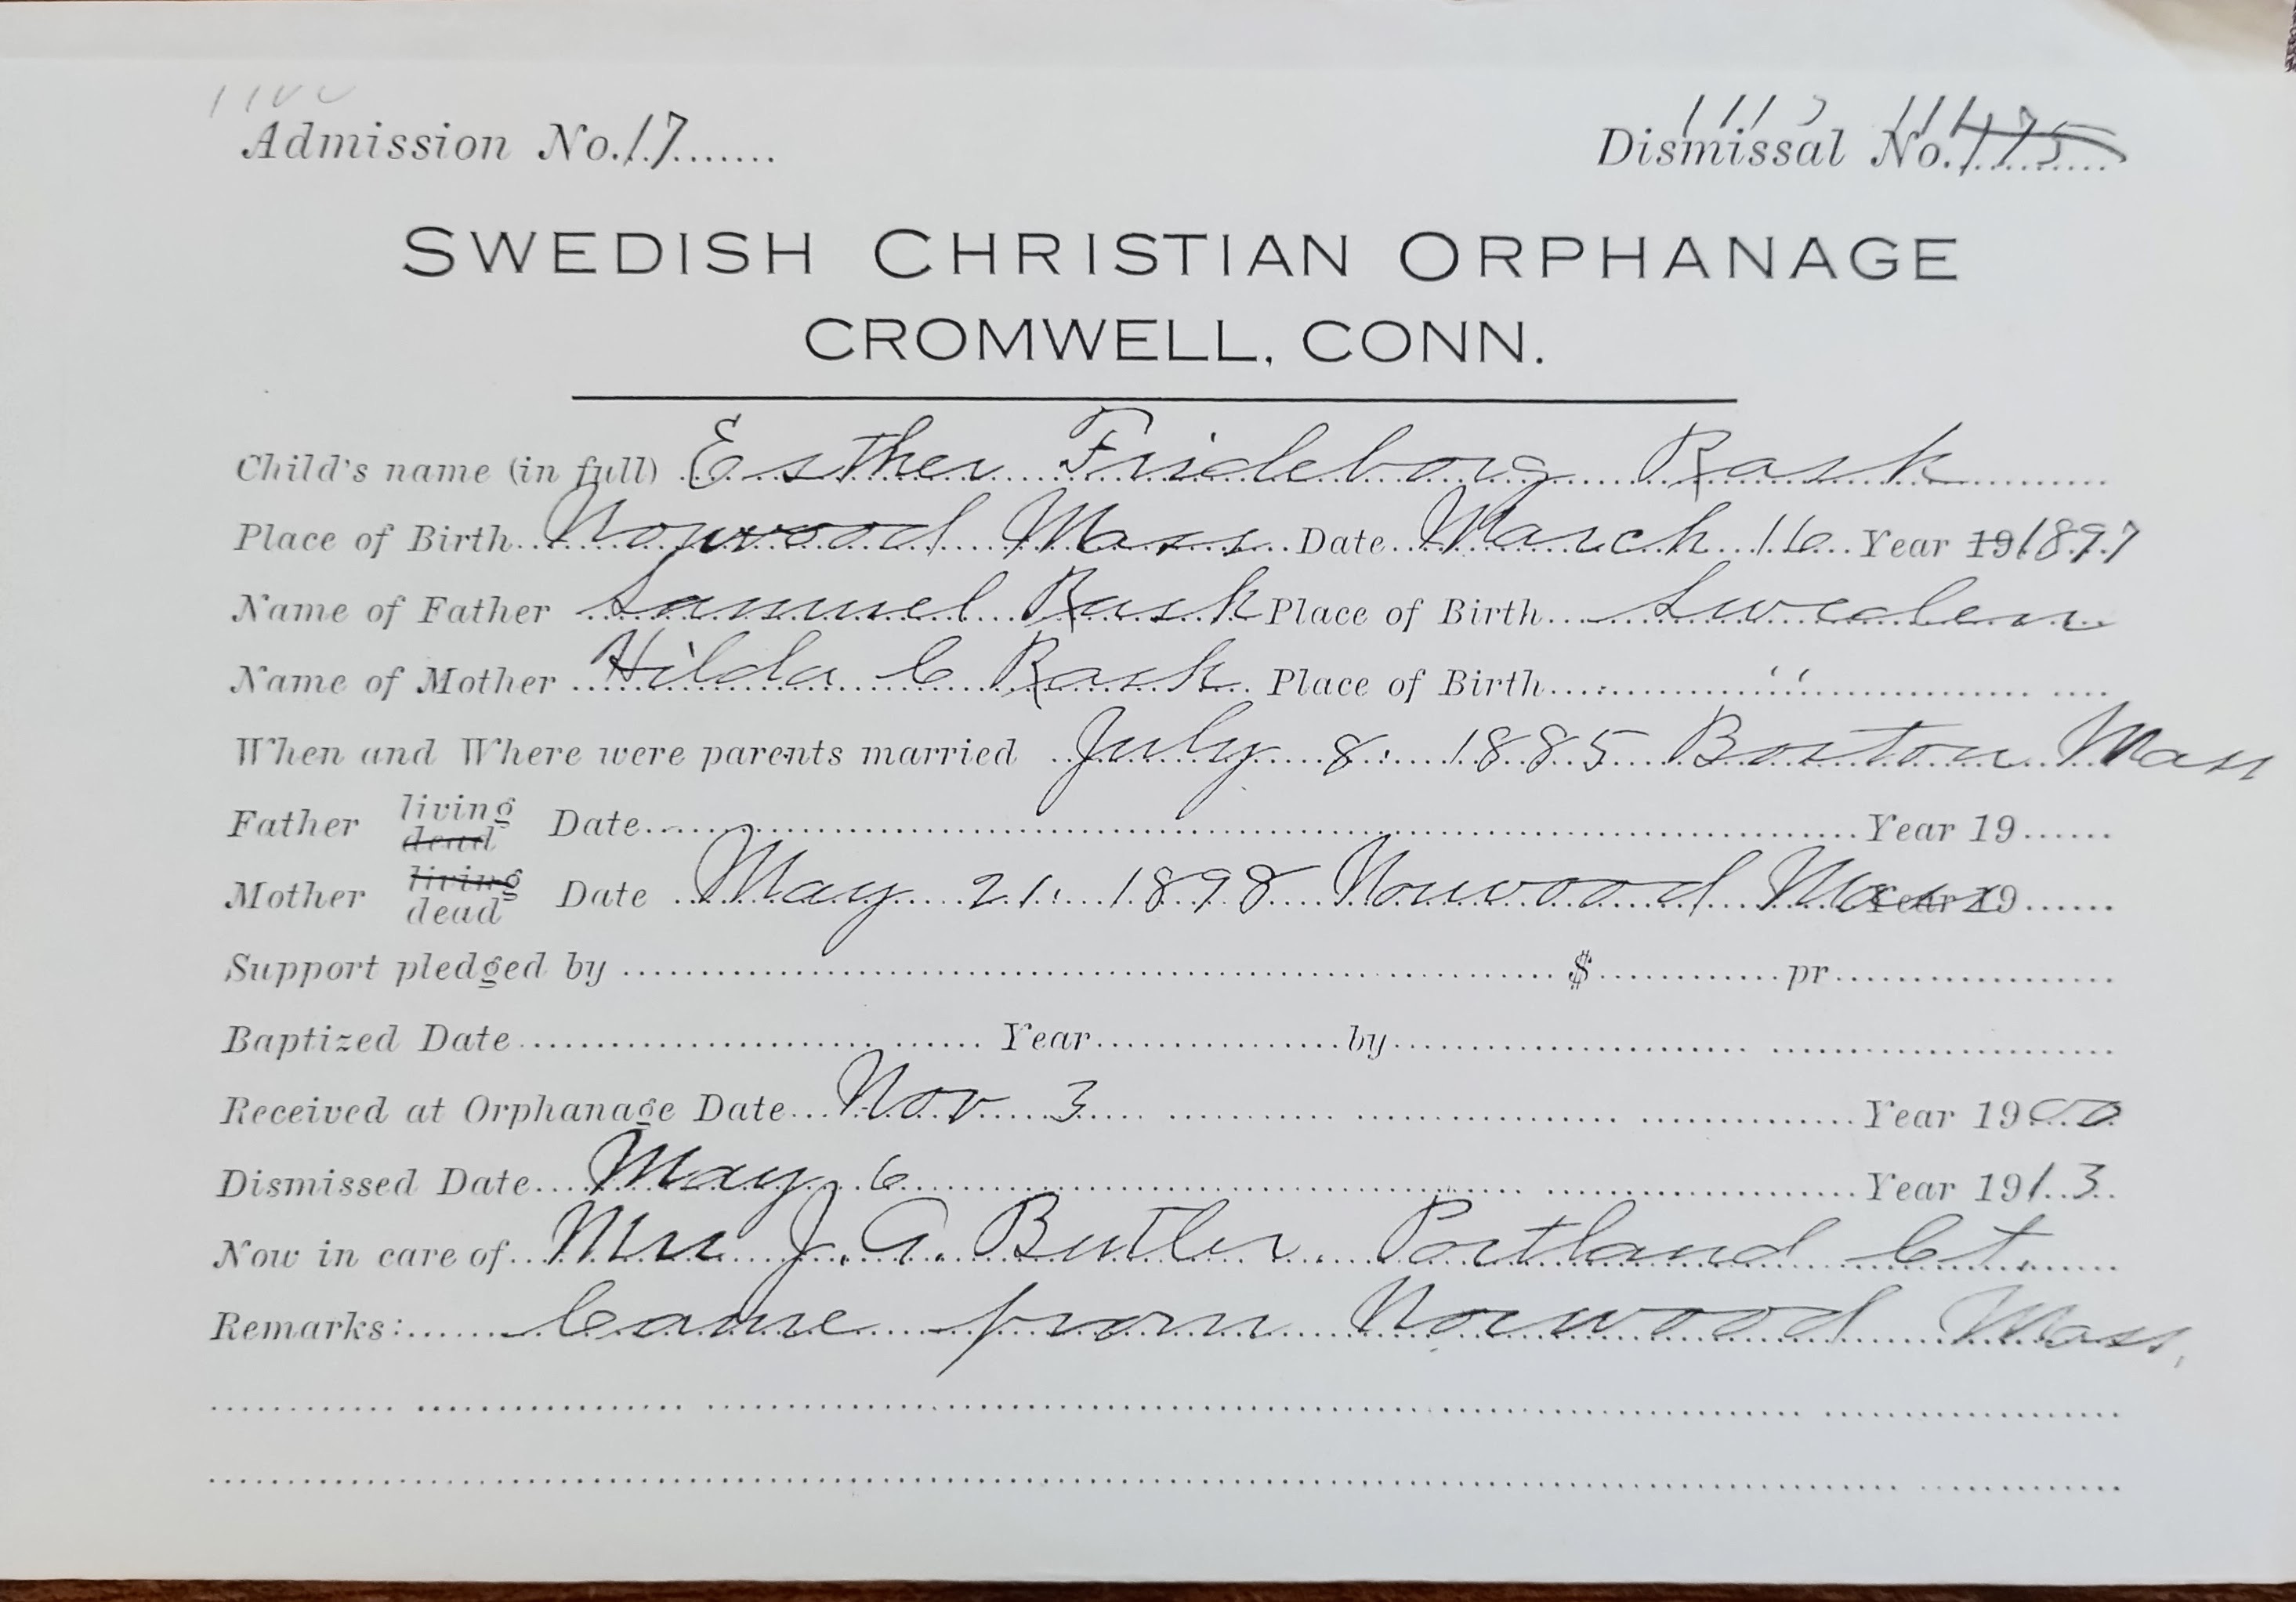 Admission No. 17
Dismissal No.
SWEDISH CHRISTIAN ORPHANAGE
CROMWELL, CONN.
Child's name (in full) Esther Frideborg Rask
Place of Birth Norwood Mass Date March 16 Year 19 1897
Name of Father Samuel Rask Place of Birth Sweden
Name of Mother Hilda C Rask Place of Birth "
When and Where were parents married July 8. 1885 Boston Mass
Father living dead Date Year 19
Mother living dead Date May 21. 1898 Norwood Mass Year 19
Support pledged by $ pr
Baptized Date Year by
Received at Orphanage Date Nov 3 Year 1900
Dismissed Date May 6 Year 1913
Now in care of Mrs J. A. Butler. Portland Ct.
Remarks: Came from Norwood Mass.